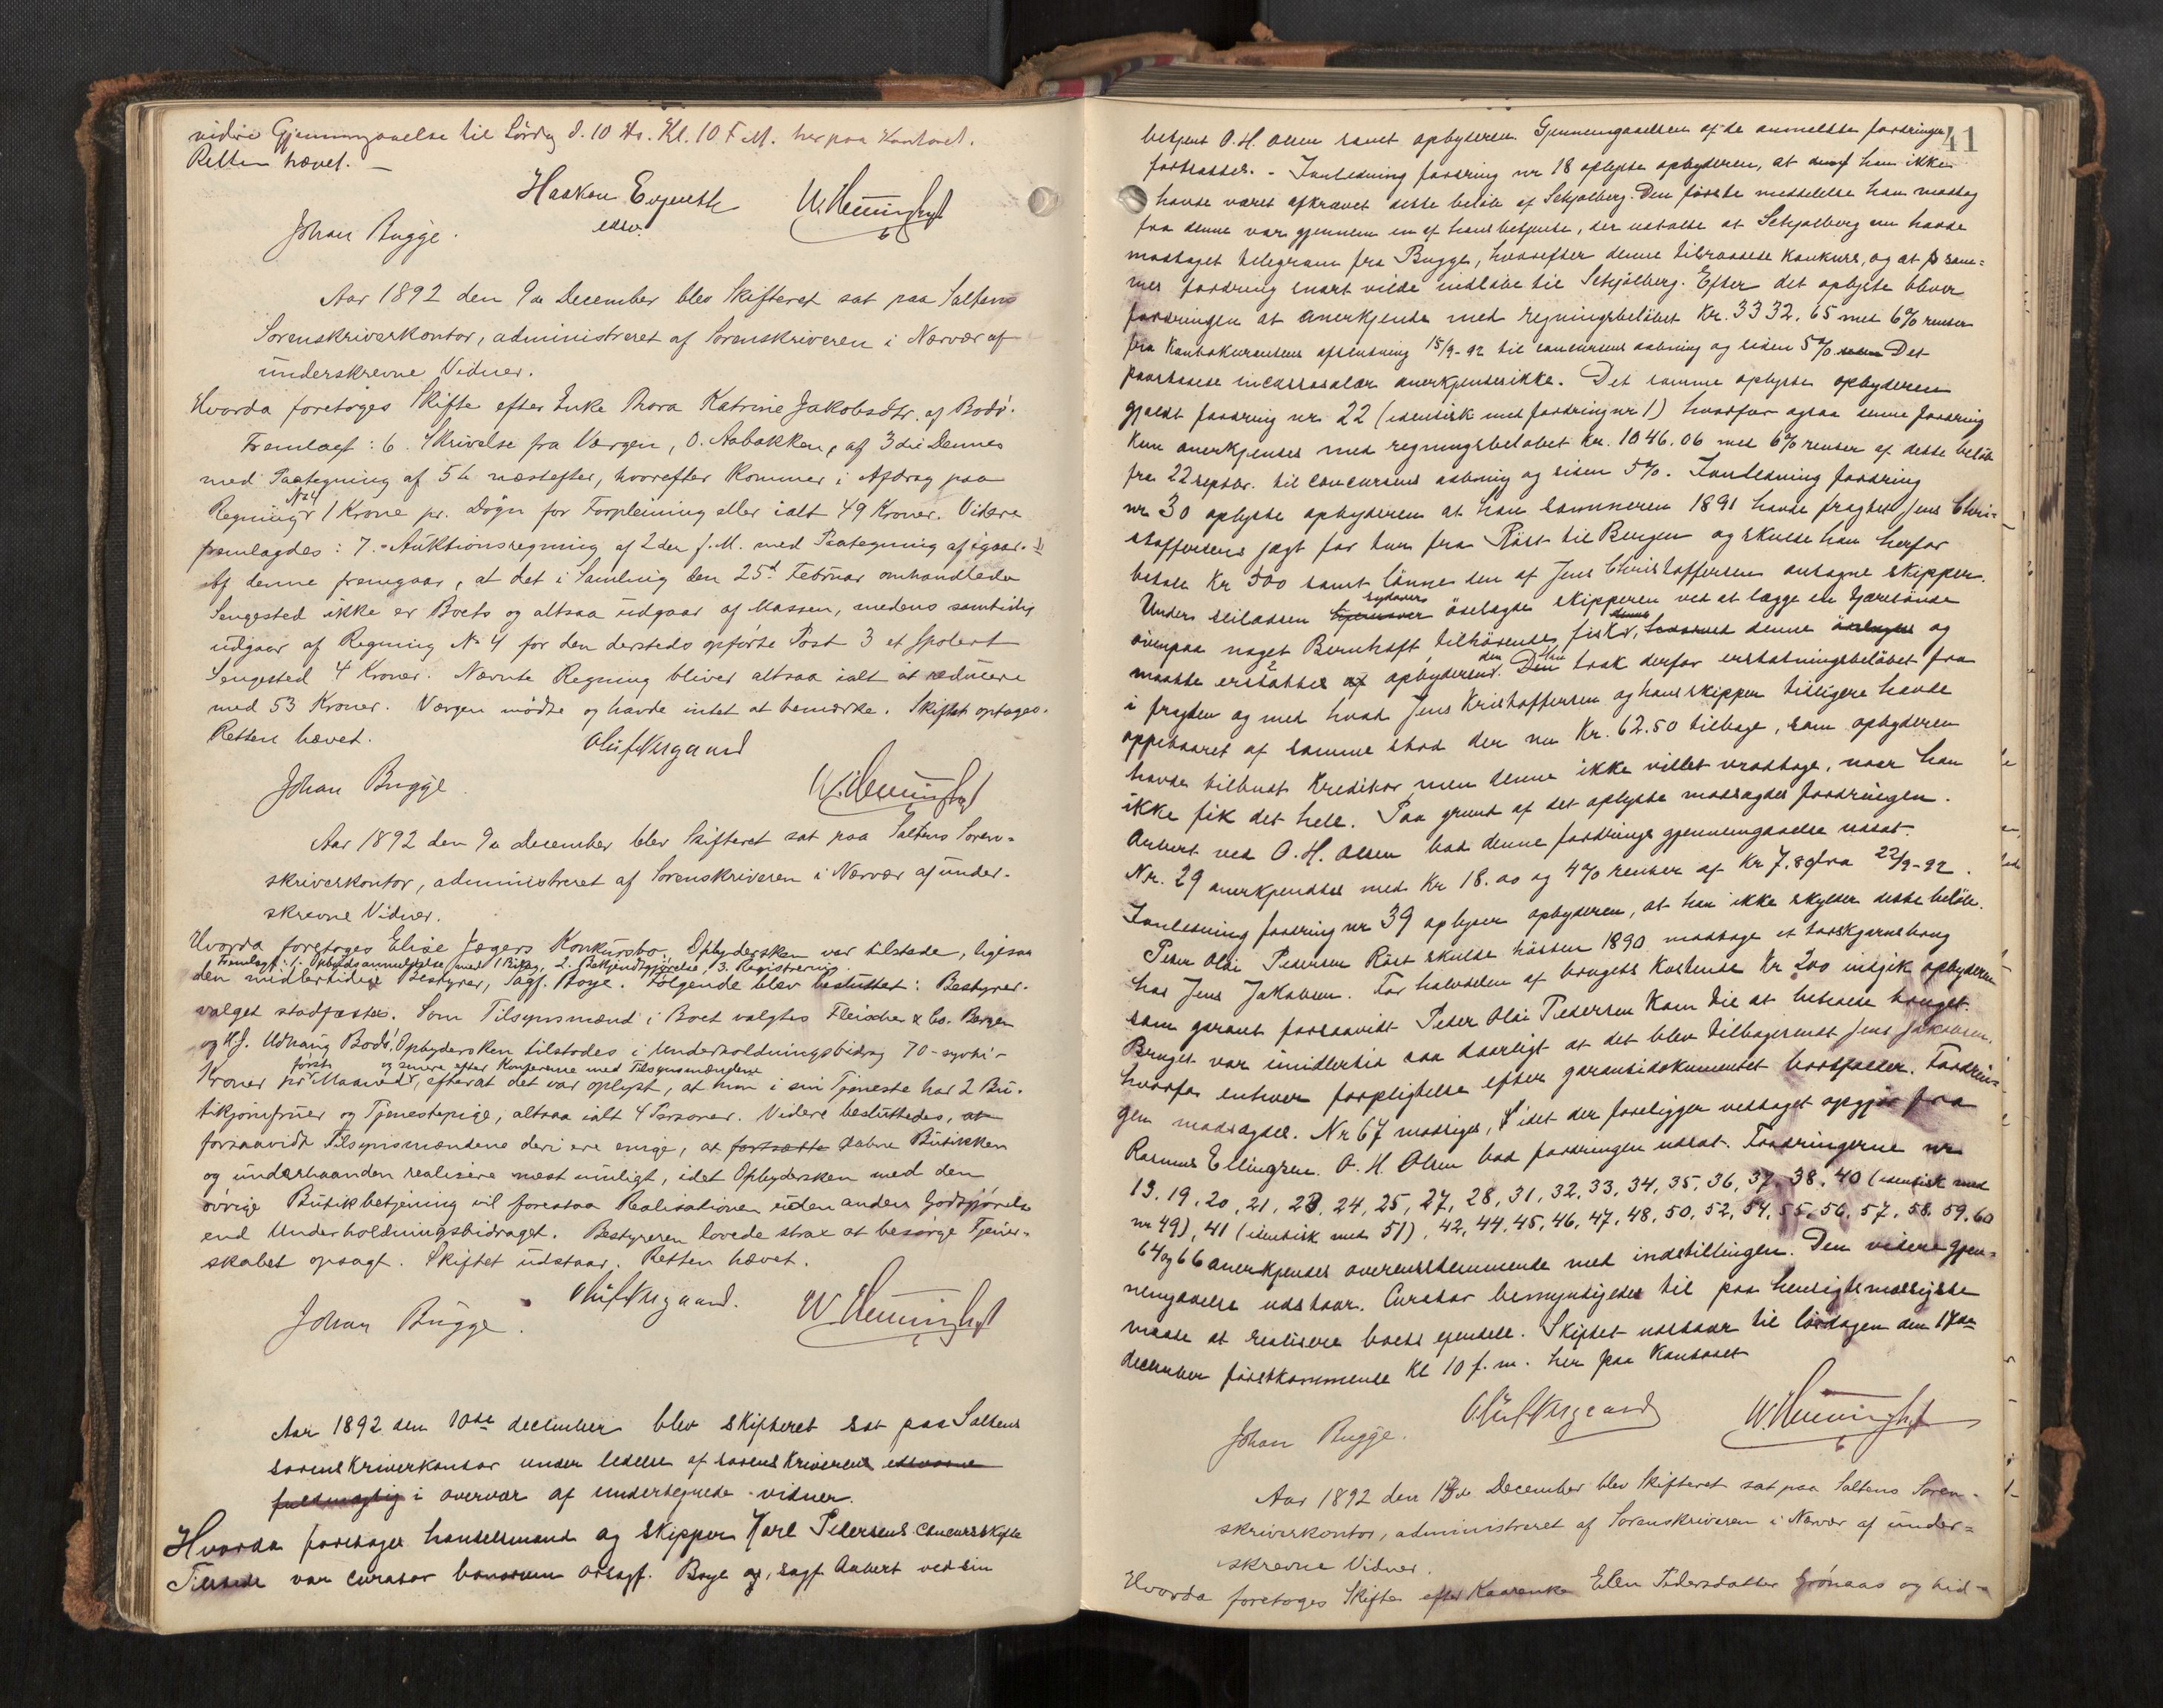 videre Gjennemgaaelse til Lördag d. 10 ds. Kl. 10 F.M. her paa Kontoret.
Retten hævet. –
Haakon Evjenth
edsv.
W. Henningh
Johan Bugge.
Aar 1892 den 9de December blev Skifteret sat paa Saltens
Sorenskriverkontor, administreret af Sorenskriveren i Nærvær af
underskrevne Vidner.
Hvorda foretoges Skifte efter Enke Thora Katrine Jakobsdtr. af Bodö.
Fremlagt: 6. Skrivelse fra Værgen, O. Aabakken, af 3die Dennes
med Paategning af 5te næstefter, hvorefter kommer i Afdrag paa
No 4
Regning 1 Krone pr. Dögn for Forpleining eller ialt 49 Kroner. Videre
fremlagdes: 7. Auktionsregning af 2den f. M. med Paategning af igaar.
Af denne fremgaar, at det i Samling den 25d Februar omhandlede
Sengested ikke er Boets og altsaa udgaar af Massen, medens samtidig
udgaar af Regning No 4 for den dersteds opförte Post 3 et Spolert
Sengested 4 Kroner. Nævnte Regning bliver altsaa ialt at reducere
med 53 Kroner. Værgen mödte og havde intet at bemærke. Skiftet optages.
Retten hævet.
Oluf Aagaard
Johan Bugge
W. Henningh
Aar 1892 den 9de december blev Skifteret sat paa Saltens Soren-
skriverkontor, administreret af Sorenskriveren i Nærvær af under-
skrevne Vidner.
Hvorda foretoges Elise Jægers Konkursbo. Opbydersken var tilstede, ligesaa
Fremlagt: 1. Opbudsanmeldelse med 1 Bilag, 2. Bekjendtgjörelse, 3. Registrering.
den midlertidige Bestyrer, Sagf. Boye. Fölgende blev besluttet: Bestyrer-
valget stadfæstes. Som Tilsynsmænd i Boet valgtes Fleischer & Co. Bergen
og H.J. Udnæng Bodö. Opbydersken tilstodes i Underholdningsbidrag 70 – sytti –
först og senere efter Konferense med Tilsynsmændene
Kroner pr Maaned, efterat det var oplyst, at hun i sin Tjeneste har 2 Bu-
tikjomfruer og Tjenestepige, altsaa ialt 4 Personer. Videre besluttedes, at
forsaavidt Tilsynsmændene deri ere enige, at fortsætte aabne Butikken
og underhaanden realisere mest muligt, idet Opbydersken med den
övrige Butikbetjening vil forestaa Realisationen uden anden Godtgjörelse
end Underholdningsbidraget. Bestyreren lovede strax at besörge Tjener-
skabet opsagt. Skiftet udstaar. Retten hævet.
Oluf Aagaard.
Johan Bugge.
W. Henningh
Aar 1892 den 10de december blev skifteret sat paa Saltens
sorenskriverkontor under ledelse af sorenskriverens edsvorne
fuldmægtig i overvær af undertegnede vidner.
Hvorda foretoges handelsmand og skipper Karl Pedersens concursskifte
Tilstede var curator bonorum orsagf. Boye og, sagf. Aubert ved sin
41
betjent O. H. Olsen samt opbyderen. Gjennemgaaelsen af de anmeldte fordringer
fortsattes. – Ianledning fordring nr 18 oplyste opbyderen, at han ikke
havde været afkrævet dette belöb af Schjölberg. Den förste meddelelse han modtog
fra denne var gjennem en af hans betjente, der udtalte at Schjölberg nu havde
modtaget telegram fra Bugge, hvorefter denne tilraadede konkurs, og at sam-
mes fordring snart vilde indlöbe til Schjölberg. Efter det oplyste bliver
fordringen at anerkjende med regningsbelöbet Kr. 3332.65 med 6% renter
fra Kontokurantens afslutning 15/9-92 til concursens aabning og siden 5% Det
paastaaede incassosalær anerkjendes ikke. Det samme oplyste opbyderen
gjaldt fordring nr. 22 (identisk med fordring nr 1) hvorfor ogsaa denne fordring
kun anerkjendes med regningsbelöbet Kr. 1046.06 med 6% renter af dette belöb
fra 22 septbr. til concursens aabning og siden 5%. Ianledning fordring
nr 30 oplyste opbyderen at han sommeren 1891 havde fragtet Jens Chri-
stoffersens jagt for tur fra Röst til Bergen og skulde han herfor
betale Kr 500 samt lönne den af Jens Christoffersen antagne skipper.
sydover
Under seiladsen hjemover ödelagde skipperen ved at lægge en tjæretönde
denne
ovenpaa noget Bernhoft tilhörende fisk, hvorved denne ödelagdes og
den Han
maatte erstattes af opbyderen. Den trak derfor erstatningsbelöbet fra
i fragten og med hvad Jens Kristoffersen og hans skipper tidligere havde
oppebaaret af samme stod der nu Kr. 62.50 tilbage, som opbyderen
havde tilbudt Kreditor, men denne ikke villet modtage, naar han
ikke fik det hele. Paa grund af det oplyste modsagdes fordringen.
Aubert ved O. H. Olsen bad denne fordrings gjennemgaaelse udsat.
Nr. 29 anerkjendtes med Kr 18.00 og 4% renter af Kr 7.80 fra 22/9-92.
Ianledning fordring nr 39 oplyser opbyderen, at han ikke skylder dette belöb.
Peder Olai Pedersen Röst skulde hösten 1890 modtage et torskgarnsbrug
hos Jens Jakobsen. For halvdelen af brugets Kostende Kr 200 indgik opbyderen
som garant forsaavidt Peder Olai Pedersen kom til at beholde bruget.
Bruget var imidlertid saa daarligt at det blev tilbagesendt Jens Jakobsen,
hvorfor enhver forpligtelse efter garantidokumentet bortfalder. Fordrin-
gen modsagdes. Nr 67 modsiges, idet der foreligger vedtaget opgjör fra
Rasmus Ellingsen. O. H. Olsen bad fordringen udsat. Fordringerne nr
13. 19. 20, 21, 23, 24, 25, 27, 28, 31, 32, 33, 34, 35, 36, 37, 38, 40 (identisk med
nr 49), 41 (identisk med 51), 42, 44, 45, 46, 47, 48, 50, 52, 54, 55, 56, 57, 58. 59. 60
64 og 66 anerkjendes overensstemmende med indstillingen. Den videre gjen-
nemgaaelse udstaar. Curator bemyndigedes til paa hensigtsmæssigste
maade at realisere boets eiendele. Skiftet udstaar til lördagen den 17de
december förstkommende Kl 10 f. m. her paa Kontoret
Oluf Aagaard
W. Henningh
Johan Bugge.
Aar 1892 den 13de December blev Skifteret sat paa Saltens Soren-
skriverkontor, administreret af Sorenskriveren i Nærvær af under-
skrevne Vidner.
Hvorda foretoges Skifte efter Kaarenke Elen Pedersdatter Grönaas og tid-